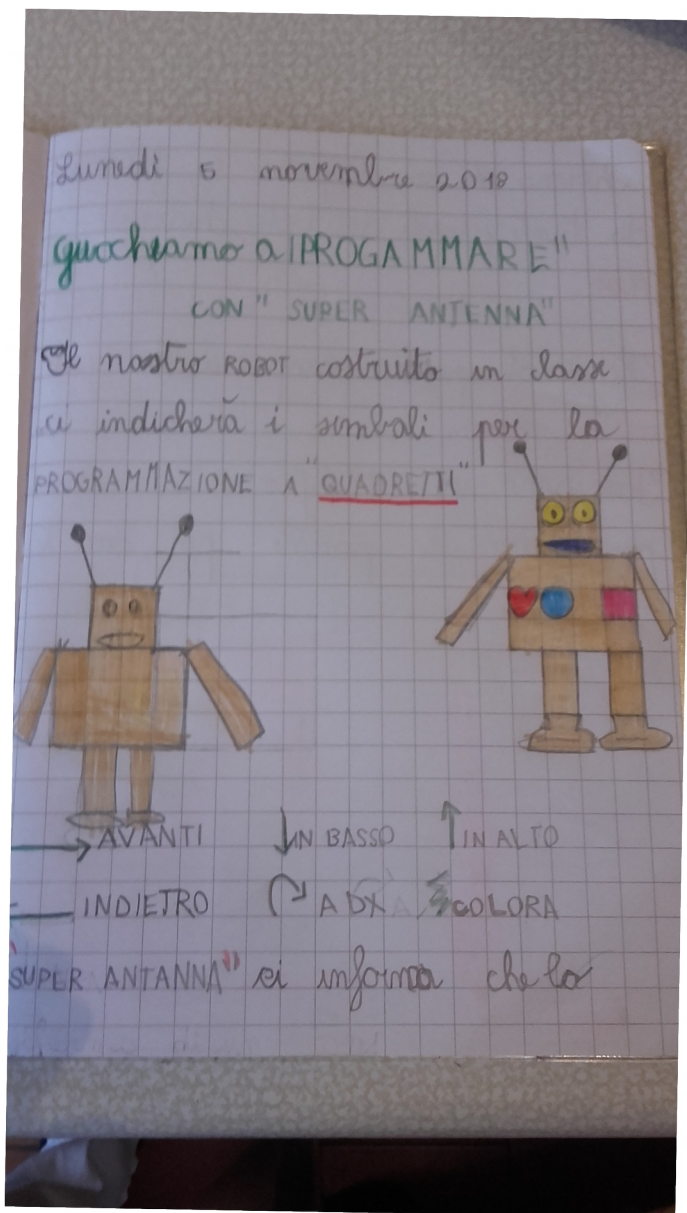 Lunedì 5 novembre 2018
Guocheamo a "PROGAMMARE"
CON "SUPER ANTENNA"
Il nostro ROBOT costruito in classe
ci indicherà i simboli per la
PROGRAMMAZIONE A "QUADRETTI"
AVANTI IN BASSO IN ALTO
INDIETRO A DX COLORA
"SUPER ANTANNA" ci informa che lo